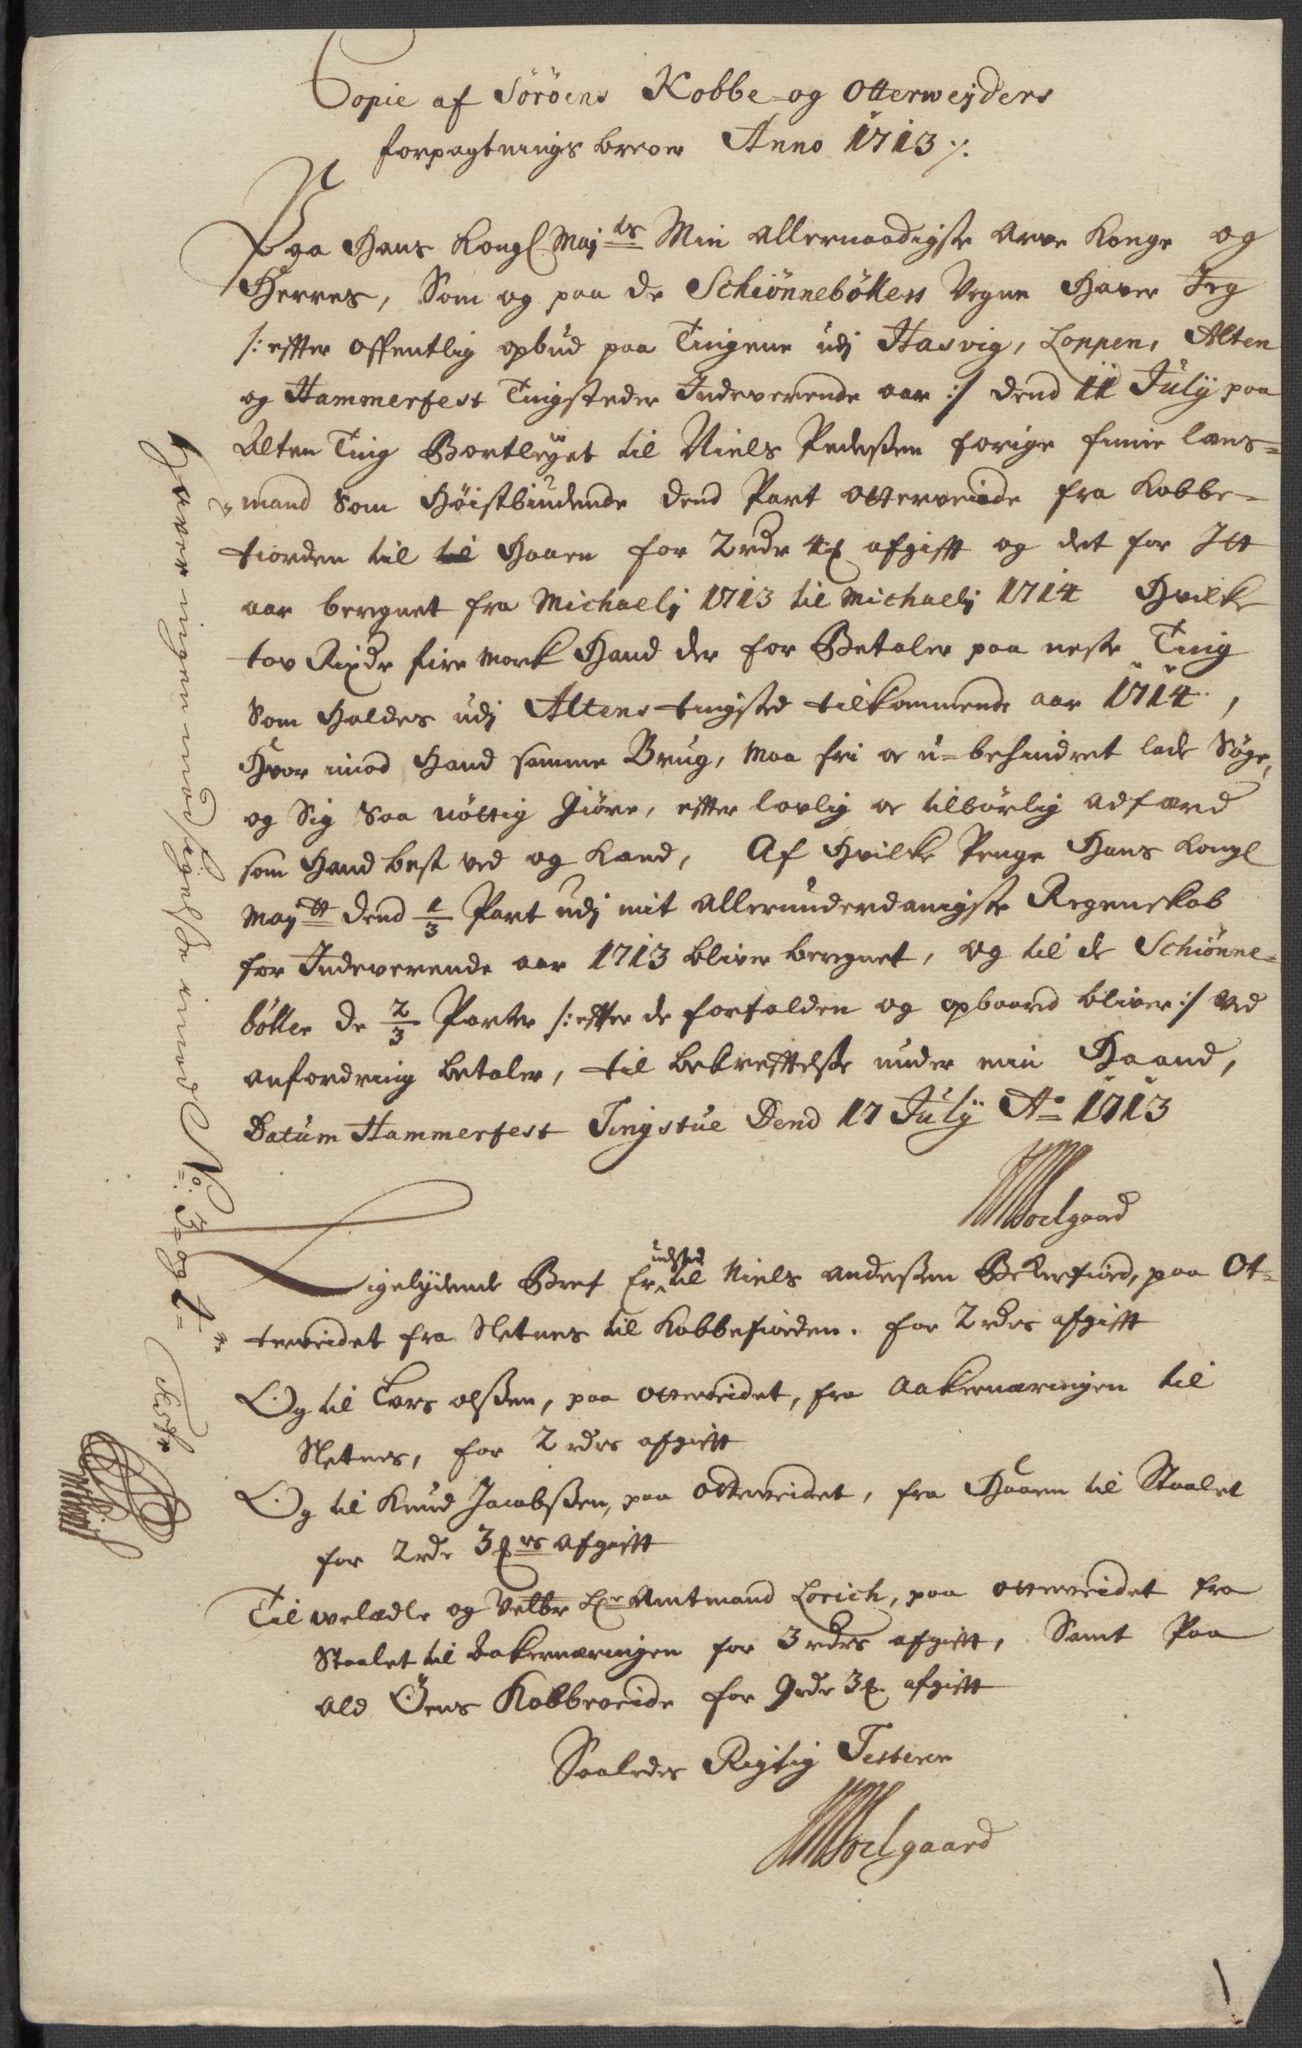 Copie af Söröens Kobbe- og Otterweyders
forpagtnings brever Anno 1713 ./.
Paa Hans Kongl Maj.ts Min allernaadigste Arve Konge og
Herres, Som og paa de Schiönnebölless Vegne Haver Jeg
/: effter offentlig opbud paa Tingene udj Hasvig, Loppen, Alten
og Hammerfest Tingsteder Indeverende aar :/ dend 11 July paa
Alten Ting Bortleyet til Niels Pedersen forige finne lens=
mand Som Höistbiudende dend Part otterveide fra Kobbe=
fiorden til til Haaen for 2 rdr 4 ß afgifft og det for Itt
aar beregnet fra Michaely 1713 til Michaely 1714 Hvilke
tov Rixdr fire mork Hand der for Betaler paa neste Ting
Som Holdes udj Altens tingsted tilkommende aar 1714,
Hvor imod Hand samme Brug, maa fri oc u-behindret lade Söge,
og Sig saa nöttig Giöre, effter lovlig oc tilbörlig adfærd
som Hand best ved og kand, Af Hvilke Penge Hans Kongl
May.tt dend 1/3 Part udj mit allerunderdanigste Regenskab
for Indeverende aar 1713 bliver beregnet, og til de Schiönne=
böller de 2/3 Parter /: effter de forfalden og opbaaren bliver :/ ved
anfordring betaler, til bekrefftelsse under min Haand,
Datum Hammerfest Tingstue Dend 17 July Ao 1713
Soelgaard
Ligelydende Bref Er udsted til Niels Andersen Bekerfiord, paa Ot=
terveidet fra Sletnes til Kobbefiorden. for 2 rdrs afgifft
Og til Lars olssen, paa otterveidet, fra Aakernæringen til
Sletnes, for 2 rdrs afgifft
Og til Knud Jacobssen, paa otterveidet, fra Haaen til Staalet
for 2 rdr 3 ß afgifft
Til welædle og Velbr Hr Amtmand Lorich, paa otterveidet fra
Staalet til Aakernæringen for 3 rdrs afgifft, Samt Paa
ald Öens Kobbeveide for 9 rdr 3 ß afgifft
Saaledes Rigtig Testerer
Soelgaard
Haver ingen modsigelsse imod No. 3 og 4